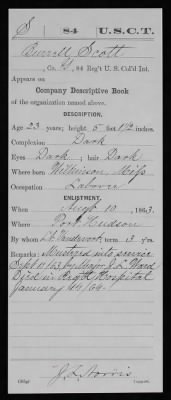 S 84 U.S.C.T.
Burrell Scott
, Co. , 84 Reg't U. S. Col'd Inf.
Appears on
Company Descriptive Book
of the organization named above.
DESCRIPTION.
Age 23 years; height 5 feet inches.
Complexion Dark
Eyes Dark ; hair Dark
Where born Wilkinson, Miss
Occupation Laborer
ENLISTMENT.
When Aug 10 , 1863.
Where Port Hudson
By whom Lt. ; term 3 y'rs.
Remarks: Mustered into service
Sept 11/63, by Major J. L. Ward
Died in Reg't Hospital
January 64.
J. L. Norris
Copyist.